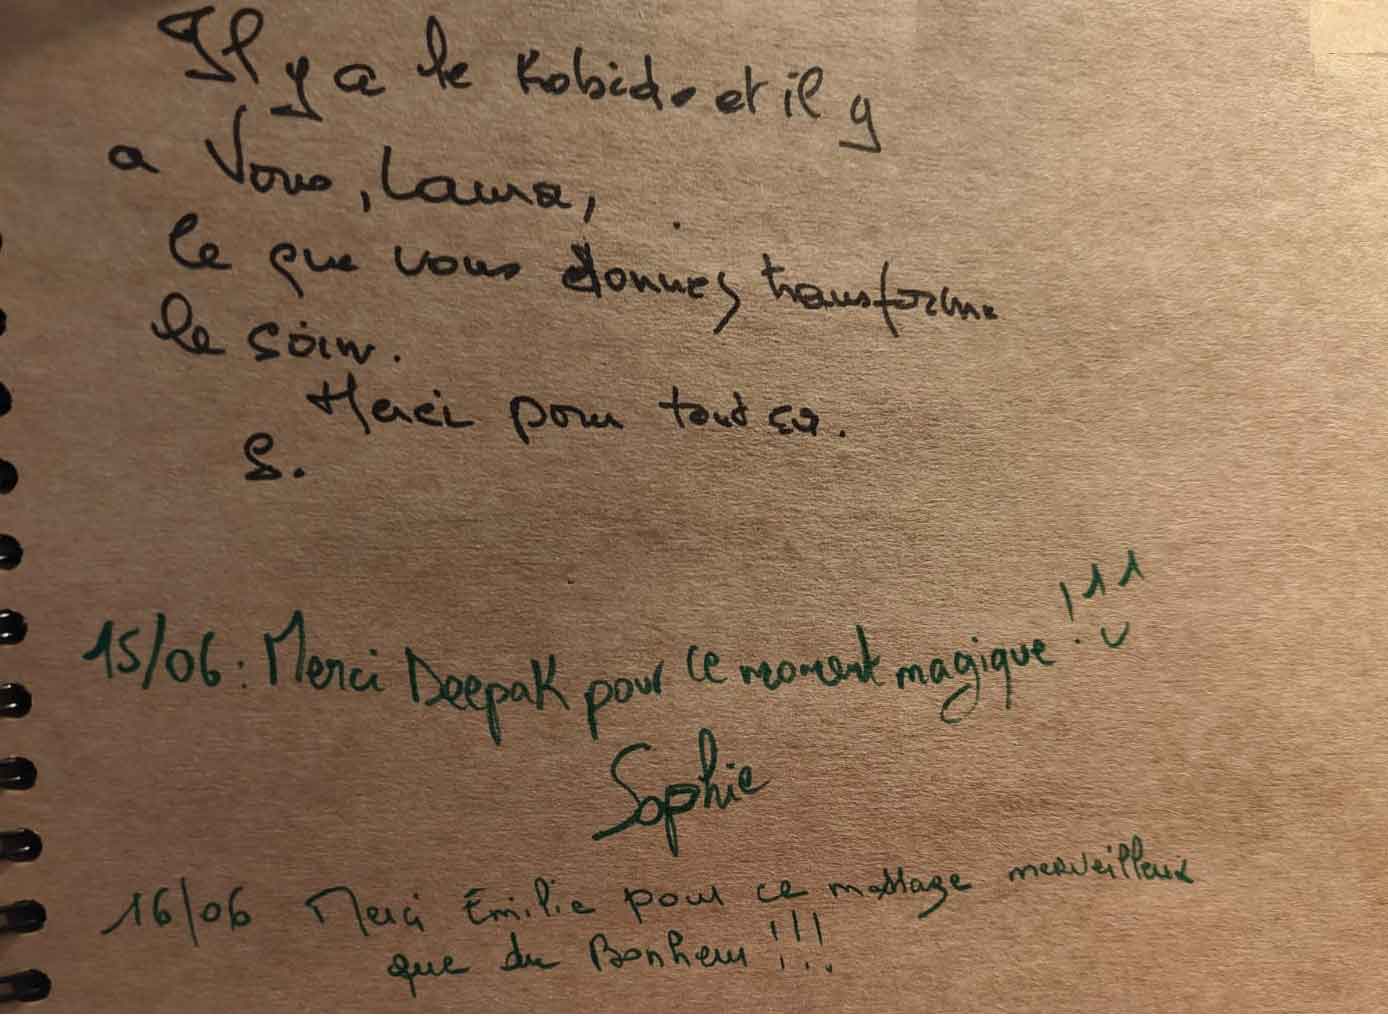 Il y a le Kobido et il y
a Vous, Laura,
ce que vous donnez transforme
le soin.
Merci pour tout ça.
S.
15/06 : Merci Deepak pour ce moment magique !!!
Sophie
16/06 Merci Émilie pour ce massage merveilleux
que du Bonheur !!!